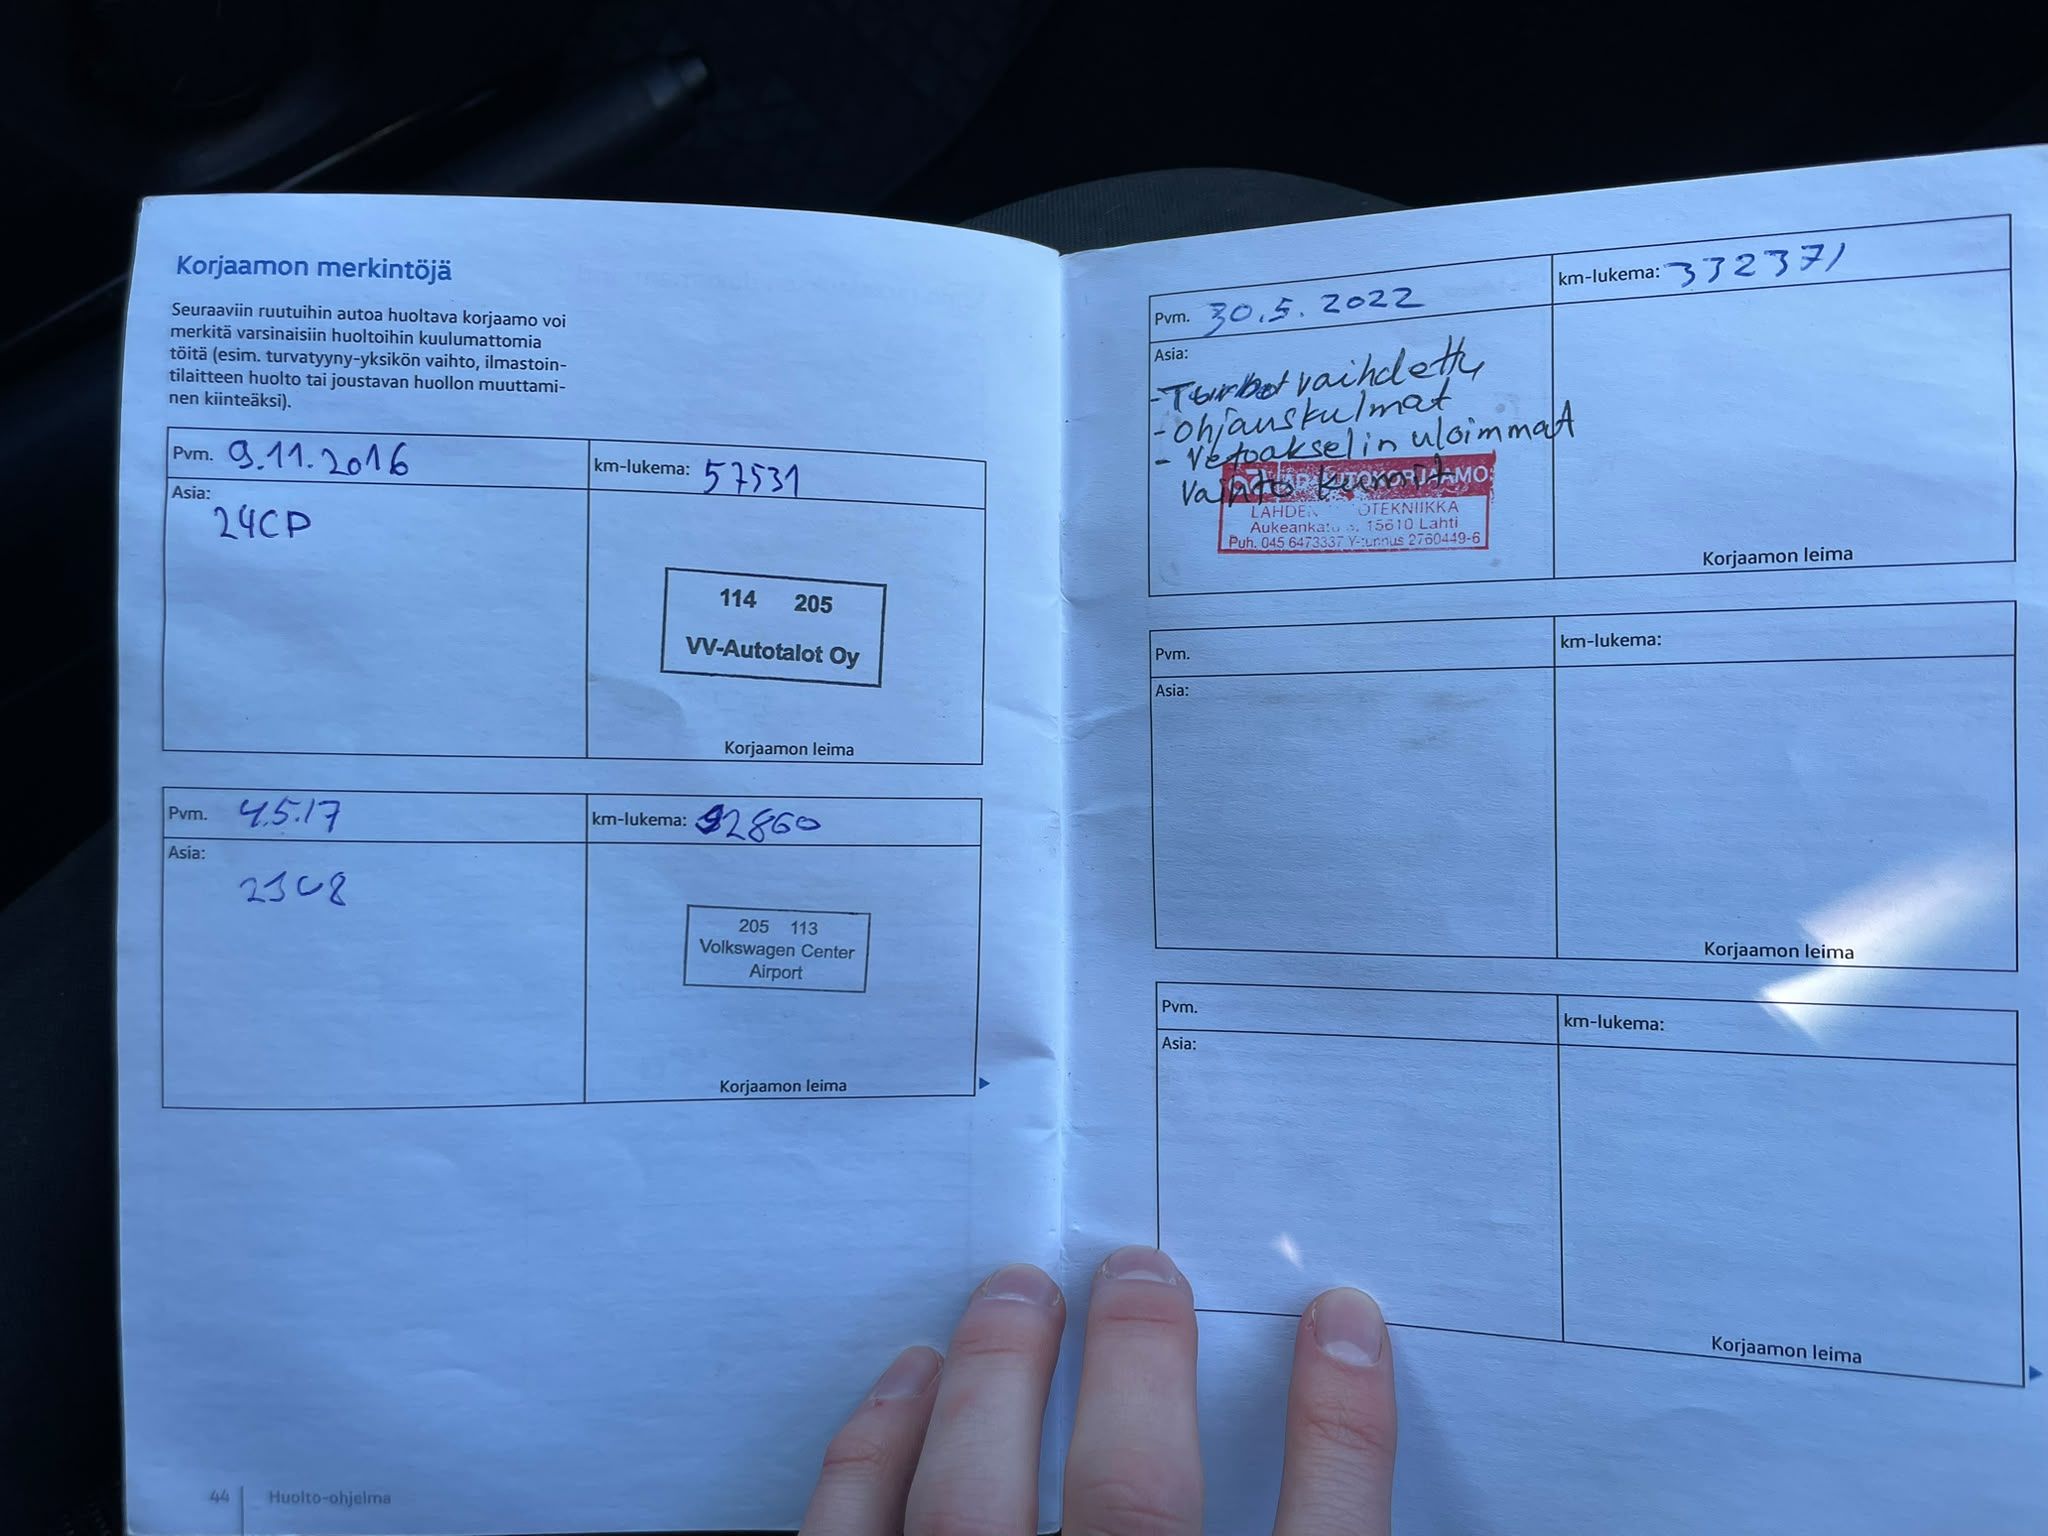 Korjaamon merkintöjä
Seuraaviin ruutuihin autoa huoltava korjaamo voi
merkitä varsinaisiin huoltoihin kuulumattomia
töitä (esim. turvatyyny-yksikön vaihto, ilmastoin-
tilaitteen huolto tai joustavan huollon muuttami-
nen kiinteäksi).
Pvm. 9.11.2016
km-lukema: 57531
Asia:
24CP
114 205
VV-Autotalot Oy
Korjaamon leima
Pvm. 4.5.17
km-lukema: 92860
Asia:
205 113
Volkswagen Center
Airport
Korjaamon leima
44 Huolto-ohjelma
Pvm. 30.5.2022
km-lukema: 332371
Asia:
- Turbot vaihdettu
- ohjauskulmat
- Vetoakselin uloimmat
Vaihto kumit
AUTOKORJAAMO
LAHDEN
Aukeankatu 15610 Lahti
Puh. 045 6473337 Y-tunnus 2760449-6
Korjaamon leima
Pvm.
km-lukema:
Asia:
Korjaamon leima
Pvm.
km-lukema:
Asia:
Korjaamon leima